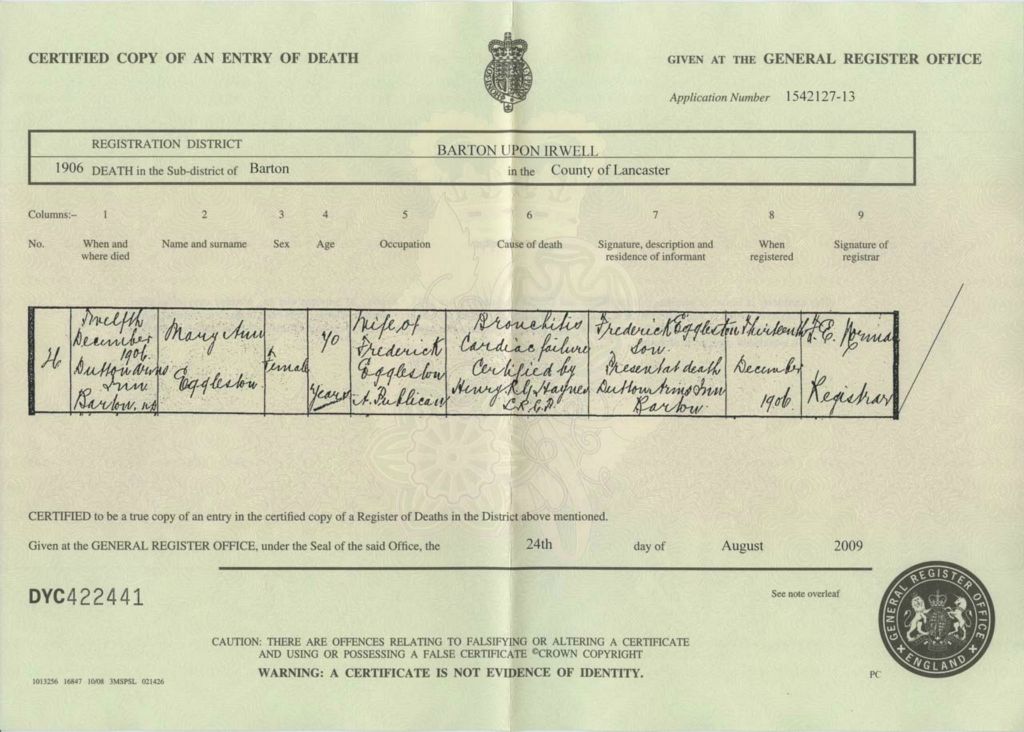 CERTIFIED COPY OF AN ENTRY OF DEATH
GIVEN AT THE GENERAL REGISTER OFFICE
Application Number 1542127-13
REGISTRATION DISTRICT
BARTON UPON IRWELL
1906 DEATH in the Sub-district of Barton in the County of Lancaster
Columns:- 1 2 3 4 5 6 7 8 9
No.
When and
where died
Name and surname
Sex
Age
Occupation
Cause of death
Signature, description and
residence of informant
When
registered
Signature of
registrar
Twelfth
December
1906
Dutton Arms
Inn
Barton
Mary Ann
Eggleston
Female
70
Years
Wife of
Frederick
Eggleston
A Publican
Bronchitis
Cardiac failure
Certified by
Henry
L.R.C.P.
Frederick Eggleston
Son
Present at death
Dutton Arms Inn
Barton
Thirteenth
December
1906
Registrar
CERTIFIED to be a true copy of an entry in the certified copy of a Register of Deaths in the District above mentioned.
Given at the GENERAL REGISTER OFFICE, under the Seal of the said Office, the 24th day of August 2009
DYC422441
See note overleaf
CAUTION: THERE ARE OFFENCES RELATING TO FALSIFYING OR ALTERING A CERTIFICATE
AND USING OR POSSESSING A FALSE CERTIFICATE ©CROWN COPYRIGHT
WARNING: A CERTIFICATE IS NOT EVIDENCE OF IDENTITY.
1013256 16847 10/08 3MSPSL 021426
PC
GENERAL REGISTER OFFICE
ENGLAND